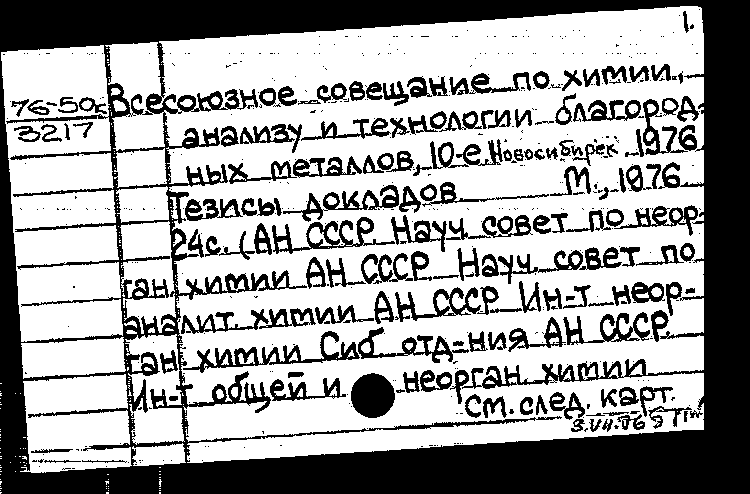 1.
76-50к Всесоюзное совещание по химии,
3217 анализу и технологии благород-
ных металлов, 10-е. Новосибирск 1976
Тезисы докладов М., 1976
24с. (АН СССР. Науч. совет по неор-
ган. химии АН СССР Науч. совет по
аналит. химии АН СССР Ин-т неор-
ган. химии Сиб отд-ния АН СССР.
Ин-т общей и неорган. химии
См. след. карт.
3.VII.76